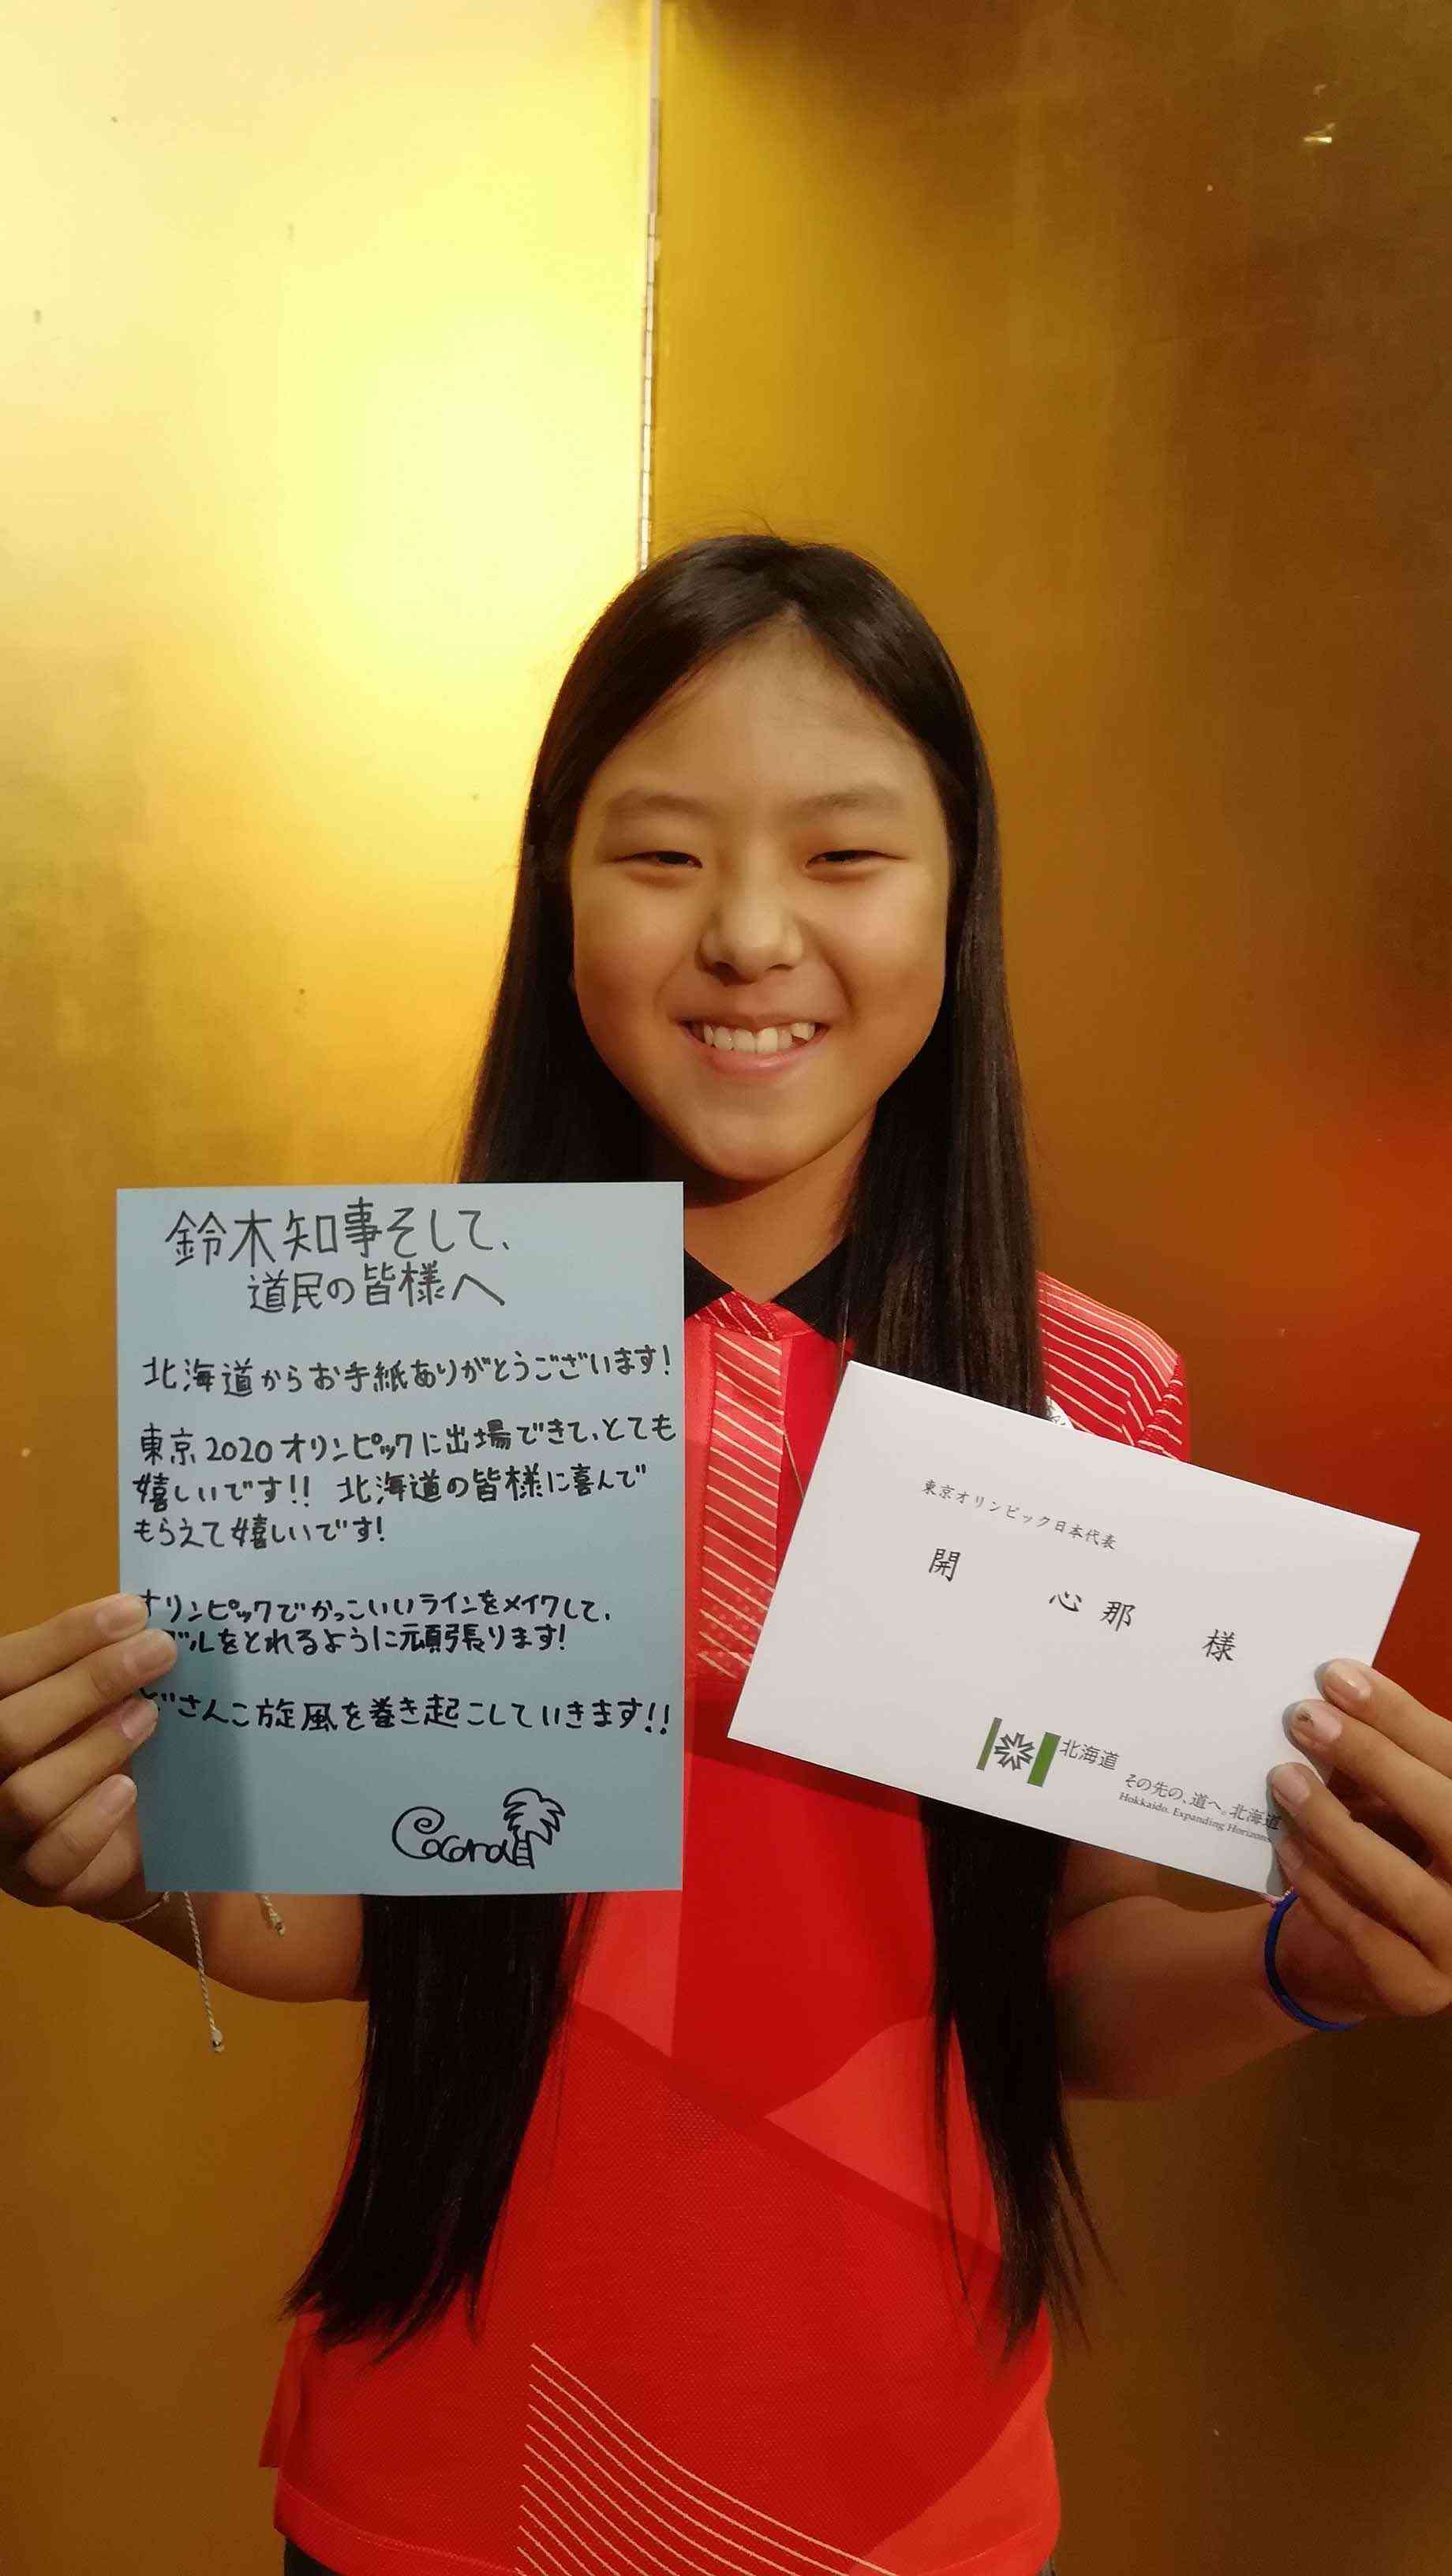 鈴木知事そして、
道民の皆様へ
北海道からお手紙ありがとうございます!
東京2020オリンピックに出場できて、とても
嬉しいです!! 北海道の皆様に喜んで
もらえて嬉しいです!
オリンピックでかっこいいラインをメイクして、
ダルをとれるように頑張ります!
どさんこ旋風を巻き起こしていきます!!
Cocona
東京オリンピック日本代表
開 心那 様
北海道
その先の、道へ。北海道
Hokkaido. Expanding Horizons.